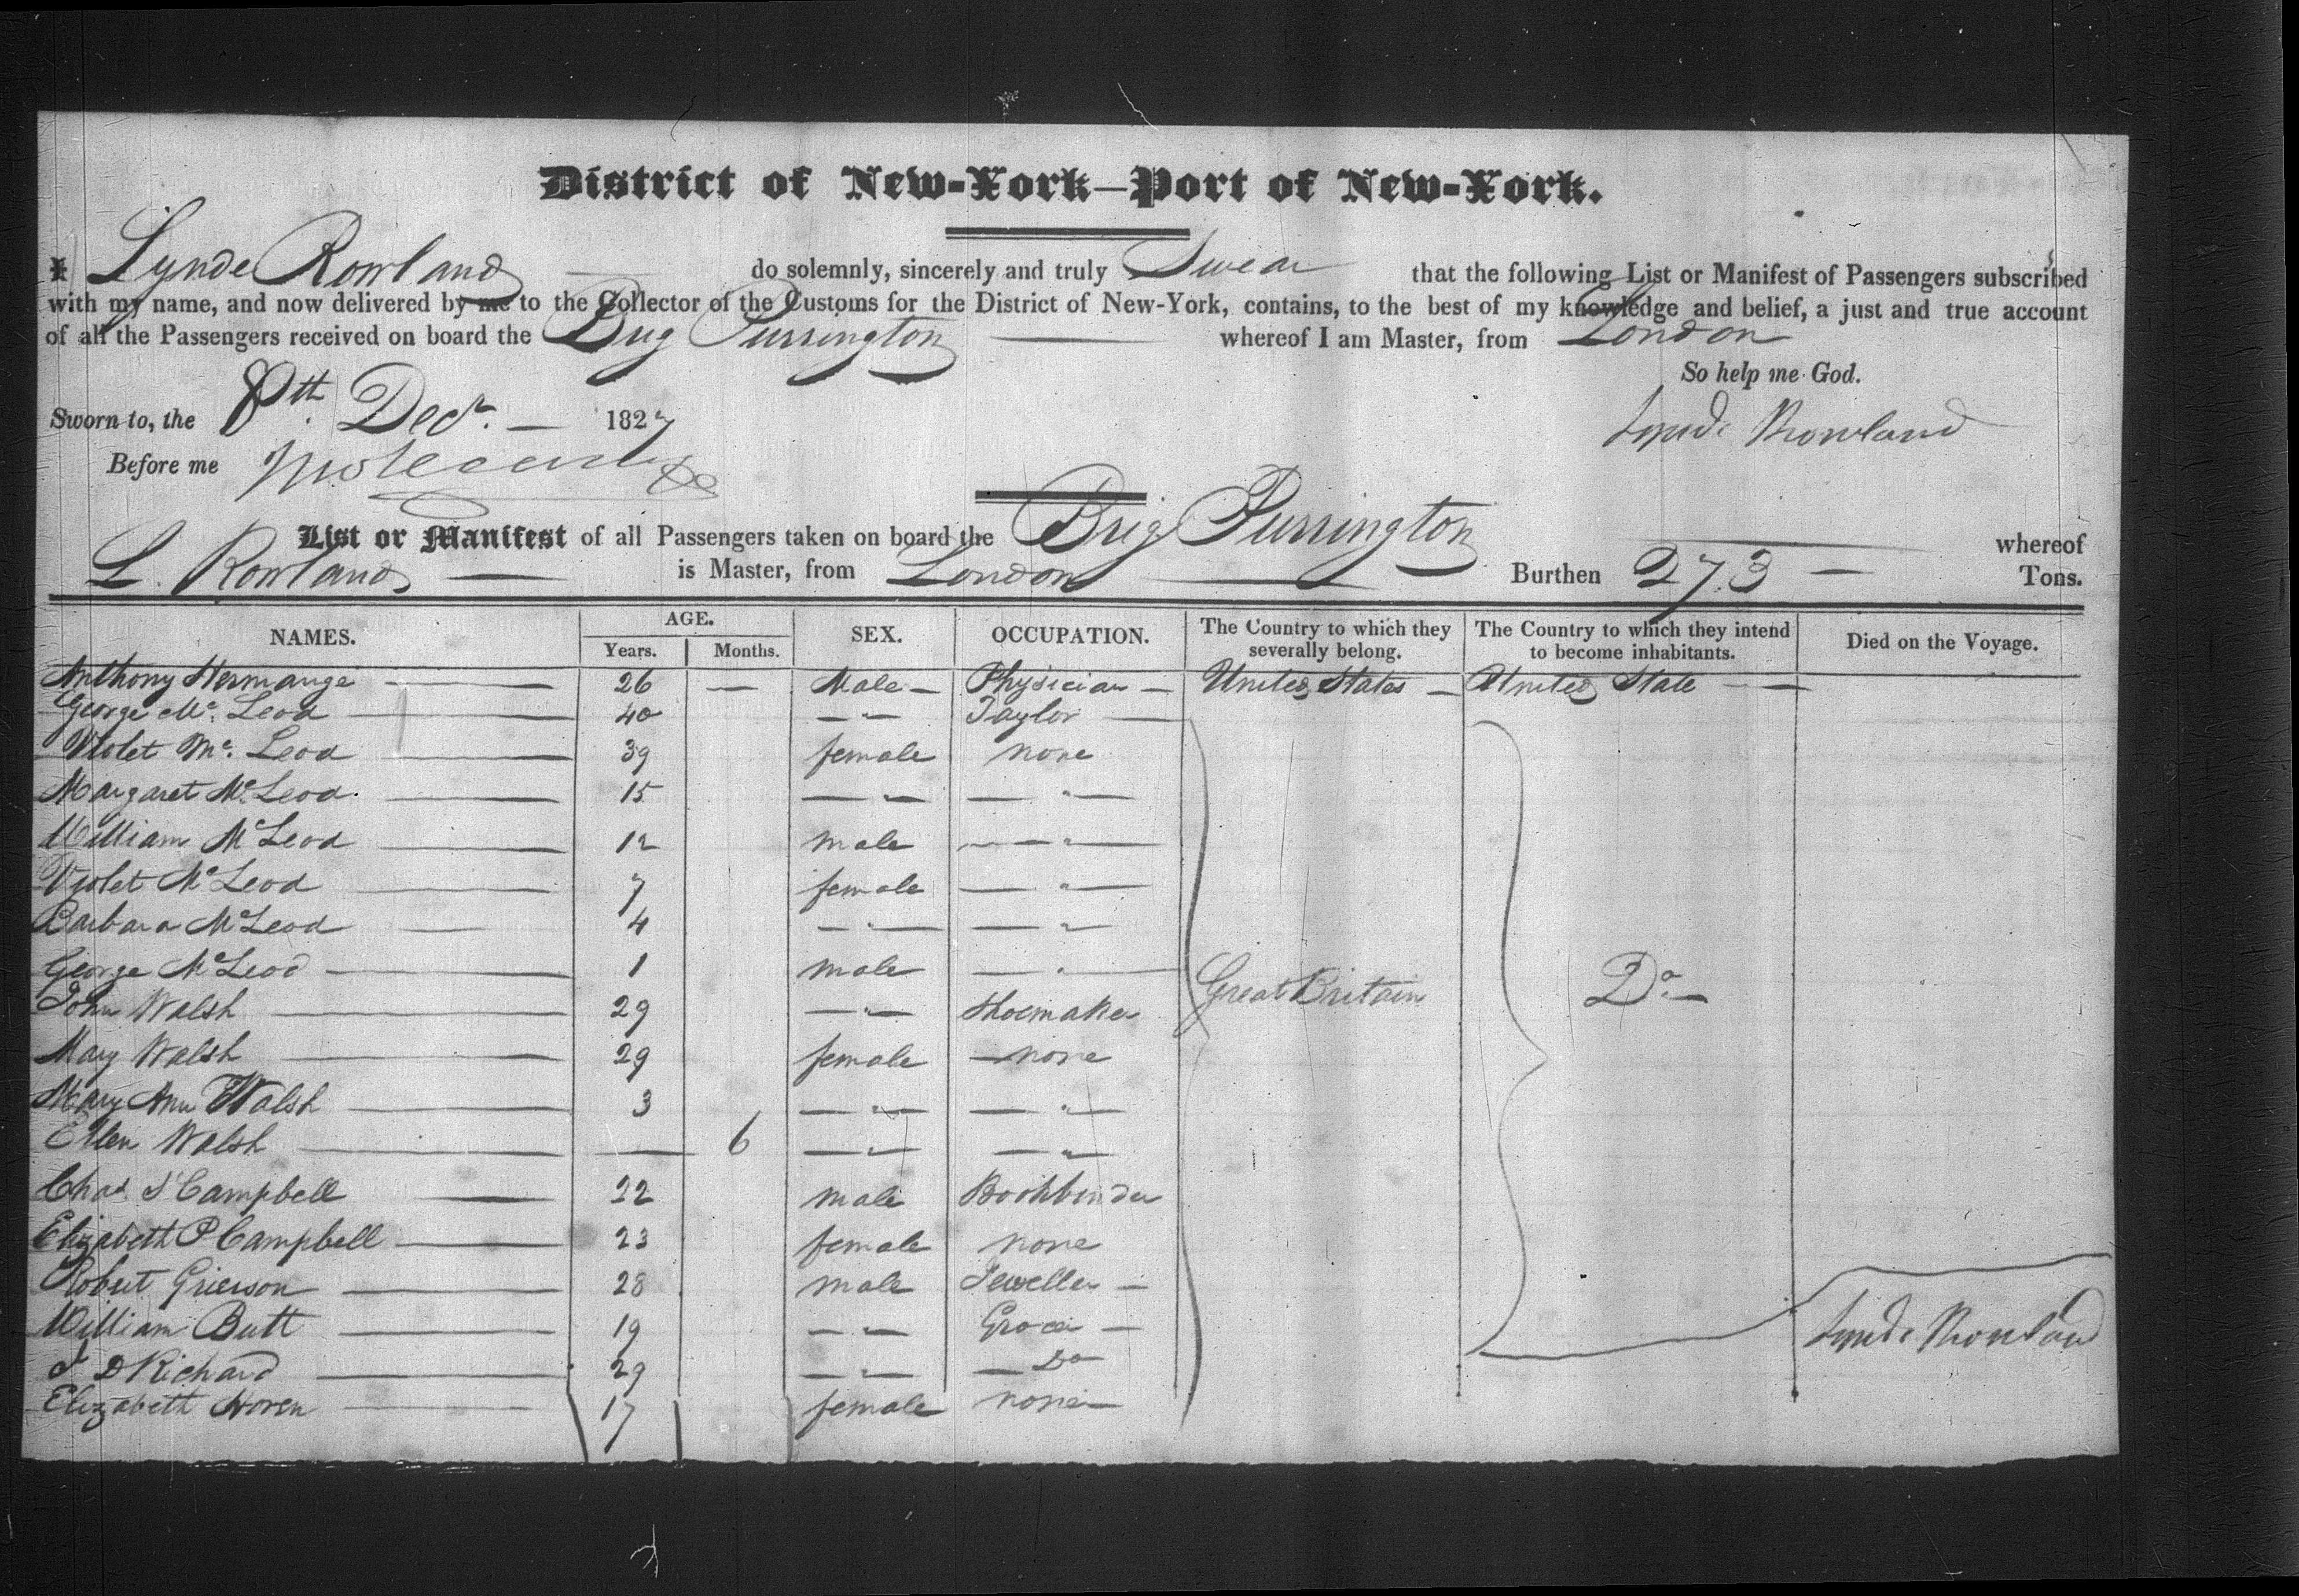 District of New-York—Port of New-York.
I Lynde Rowland do solemnly, sincerely and truly Swear that the following List or Manifest of Passengers subscribed
with my name, and now delivered by me to the Collector of the Customs for the District of New-York, contains, to the best of my knowledge and belief, a just and true account
of all the Passengers received on board the Brig Purrington whereof I am Master, from London
So help me God.
Sworn to, the 8th. Decr. 1827
Lynde Rowland
Before me
List or Manifest of all Passengers taken on board the Brig Purrington whereof
L. Rowland is Master, from London Burthen 273 Tons.
NAMES. AGE. Years. Months. SEX. OCCUPATION. The Country to which they severally belong. The Country to which they intend to become inhabitants. Died on the Voyage.
Anthony Hermange 26 — Male Physician United States United State
George Mc. Leod 40 " Taylor
Violet Mc. Leod 39 female none
Margaret McLeod 15 " "
William McLeod 12 male "
Violet McLeod 7 female "
Barbara McLeod 4 " "
George McLeod 1 male "
John Walsh 29 " Shoemaker Great Britain Do
Mary Walsh 29 female none
Mary Ann Walsh 3 " "
Ellen Walsh — 6 " "
Chas S Campbell 22 male Bookbinder
Elizabeth P Campbell 23 female none
Robert Grierson 28 male Jeweller
William Butt 19 " Grocer
Lynde Rowland
D Richard 29 " Do
Elizabeth Horen 17 female none